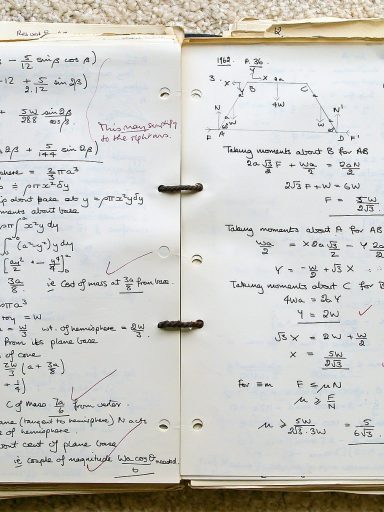 - 5/12 sinβ cosβ)
-12 + 5/2.12 sin2β)
+ 5W/288 sin2β/cosβ
This may simplify
to the right ans.
2β + 5/144 sin2β)
sphere = 2/3 πa³
≏ ρπx²δy
about base at y = ρπx²yδy
moments about base
ρπ∫x²y dy
(a²-y²)y dy
[a²y²/2 - y⁴/4]
3a/8 ie Cent of mass at 3a/8 from base.
ρπa³
= W
= W/3 wt. of hemisphere = 2W/3
from its plane base
of cone
2W/3 (a + 3a/8)
+ 1/4)
C of mass 7a/6 from vertex.
plane (tangent to hemisphere) N acts
of hemisphere
about cent of plane base
ie couple of magnitude Wa cosθ/6 needed.
1962. P.36
Y
3. X X 2a
B C
4W
N N'
W W
F A D F'
Taking moments about B for AB
2a √3/2 F + Wa/2 = 2aN/2
2√3F + W = 6W
F = 5W/2√3
Taking moments about A for AB
Wa/2 = X2a√3/2 - Y 2a/2
Y = -W/2 + √3X
Taking moments about C for B
4Wa = 2aY
Y = 2W
√3X = 2W + W/2
X = 5W/2√3
For ≡m F ≤ μN
μ ≥ F/N
μ ≥ 5W/2√3.3W = 5/6√3